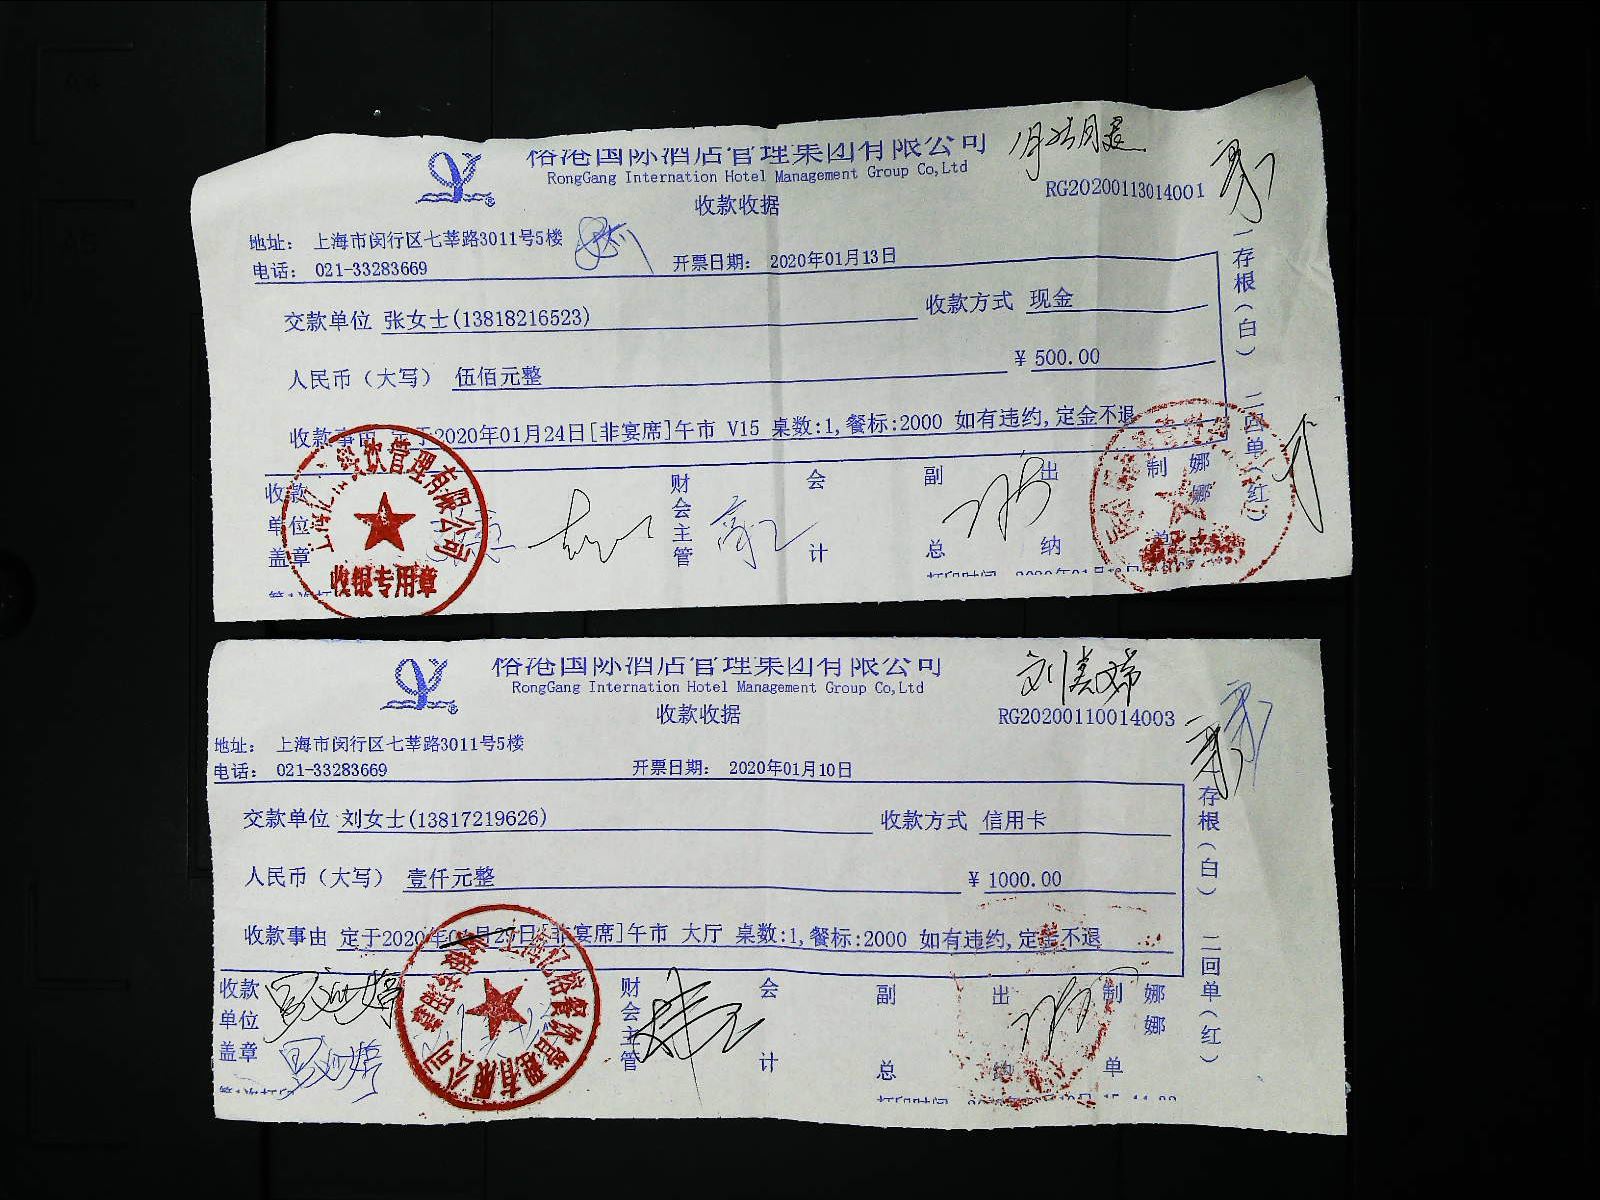 榕港国际酒店管理集团有限公司
RongGang Internation Hotel Management Group Co,Ltd
收款收据
RG20200113014001
地址： 上海市闵行区七莘路3011号5楼
电话： 021-33283669
开票日期： 2020年01月13日
交款单位 张女士(13818216523)
收款方式 现金
人民币（大写） 伍佰元整
¥ 500.00
收款事由 定于2020年01月24日[非宴席]午市 V15 桌数:1,餐标:2000 如有违约,定金不退
收款单位盖章
财会主管
会计
副总
出纳
制单
娜娜
一存根(白) 二回单(红)
餐饮管理有限公司
收银专用章
榕港国际酒店管理集团有限公司
RongGang Internation Hotel Management Group Co,Ltd
收款收据
刘美娣
RG20200110014003
地址： 上海市闵行区七莘路3011号5楼
电话： 021-33283669
开票日期： 2020年01月10日
交款单位 刘女士(13817219626)
收款方式 信用卡
人民币（大写） 壹仟元整
¥ 1000.00
收款事由 定于2020年 月25日[非宴席]午市 大厅 桌数:1,餐标:2000 如有违约,定金不退
收款单位盖章
财会主管
会计
副总
出纳
制单
娜娜
存根(白) 二回单(红)
上海忆榕餐饮管理有限公司
收银专用章